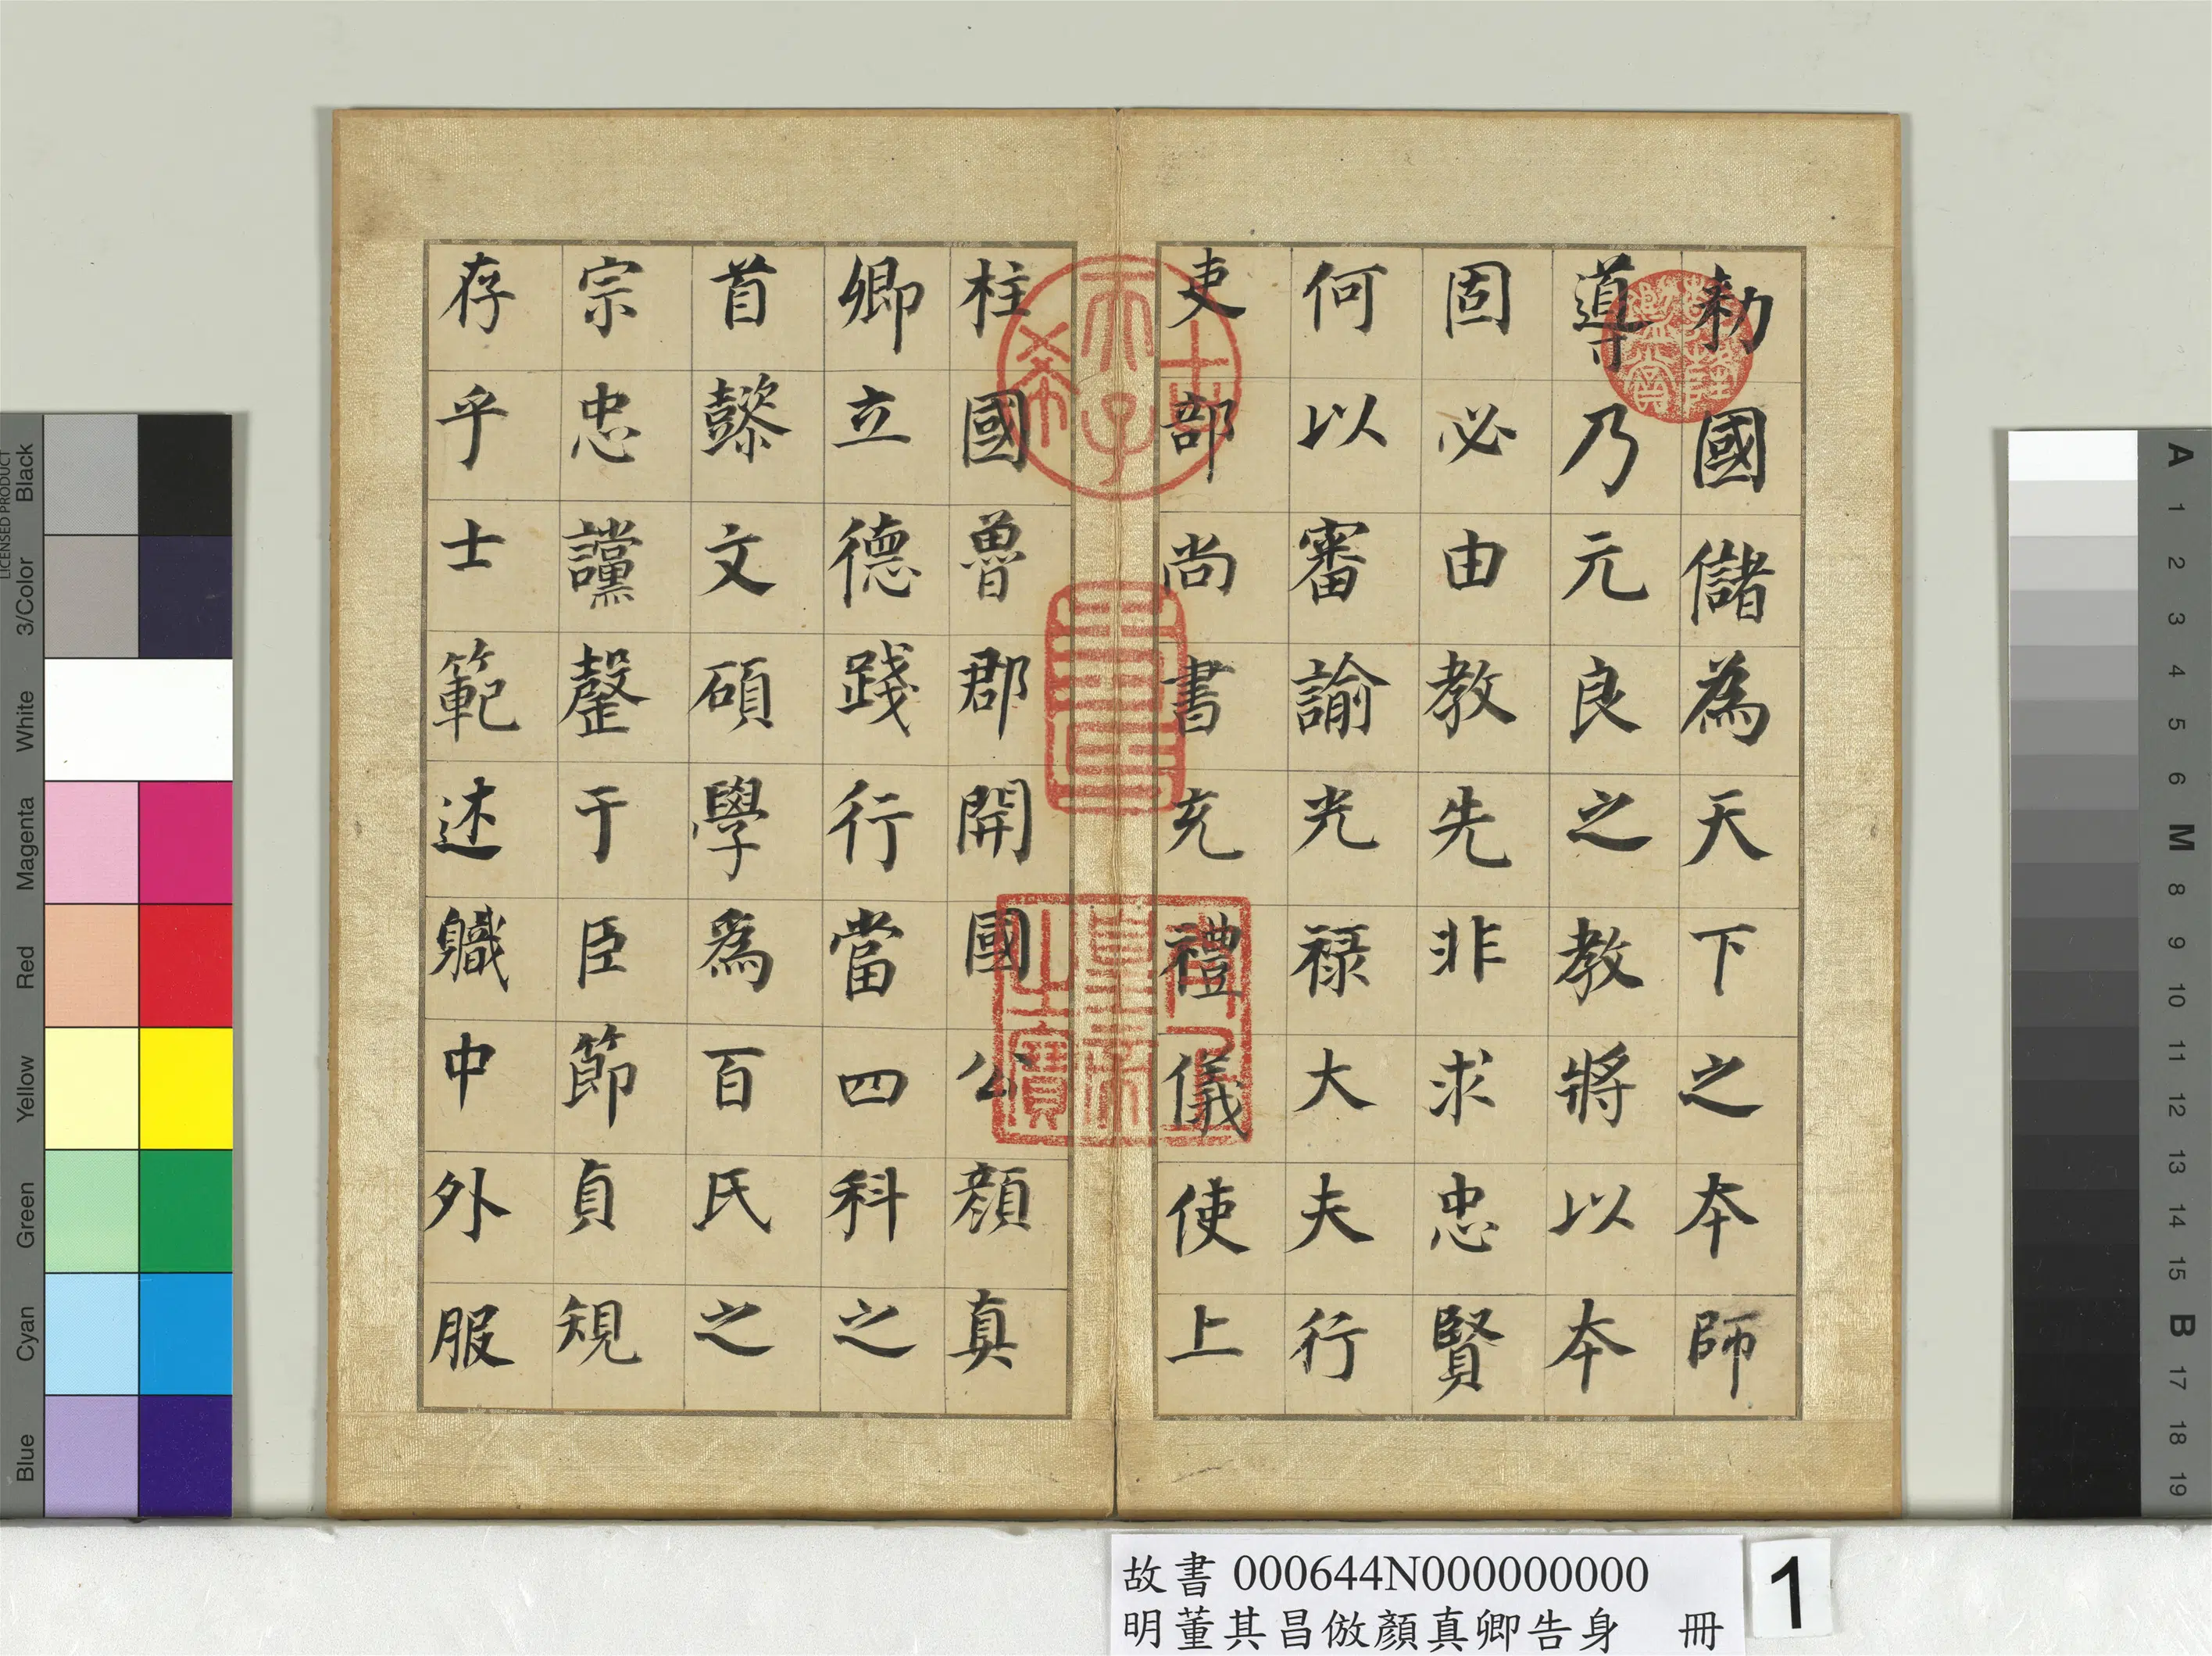 勅國儲為天下之本師
導乃元良之教將以本
固必由教先非求忠賢
何以審諭光禄大夫行
吏部尚書充禮儀使上
柱國魯郡開國公顏真
卿立德踐行當四科之
首懿文碩學為百氏之
宗忠讜罄于臣節貞規
存乎士範述職中外服
古希天子
壽
八徵耄念之寶
故書 000644N000000000
明董其昌倣顏真卿告身 冊
1
LICENSED PRODUCT
Black
3/Color
White
Magenta
Red
Yellow
Green
Cyan
Blue
A 1 2 3 4 5 6 M 8 9 10 11 12 13 14 15 B 17 18 19